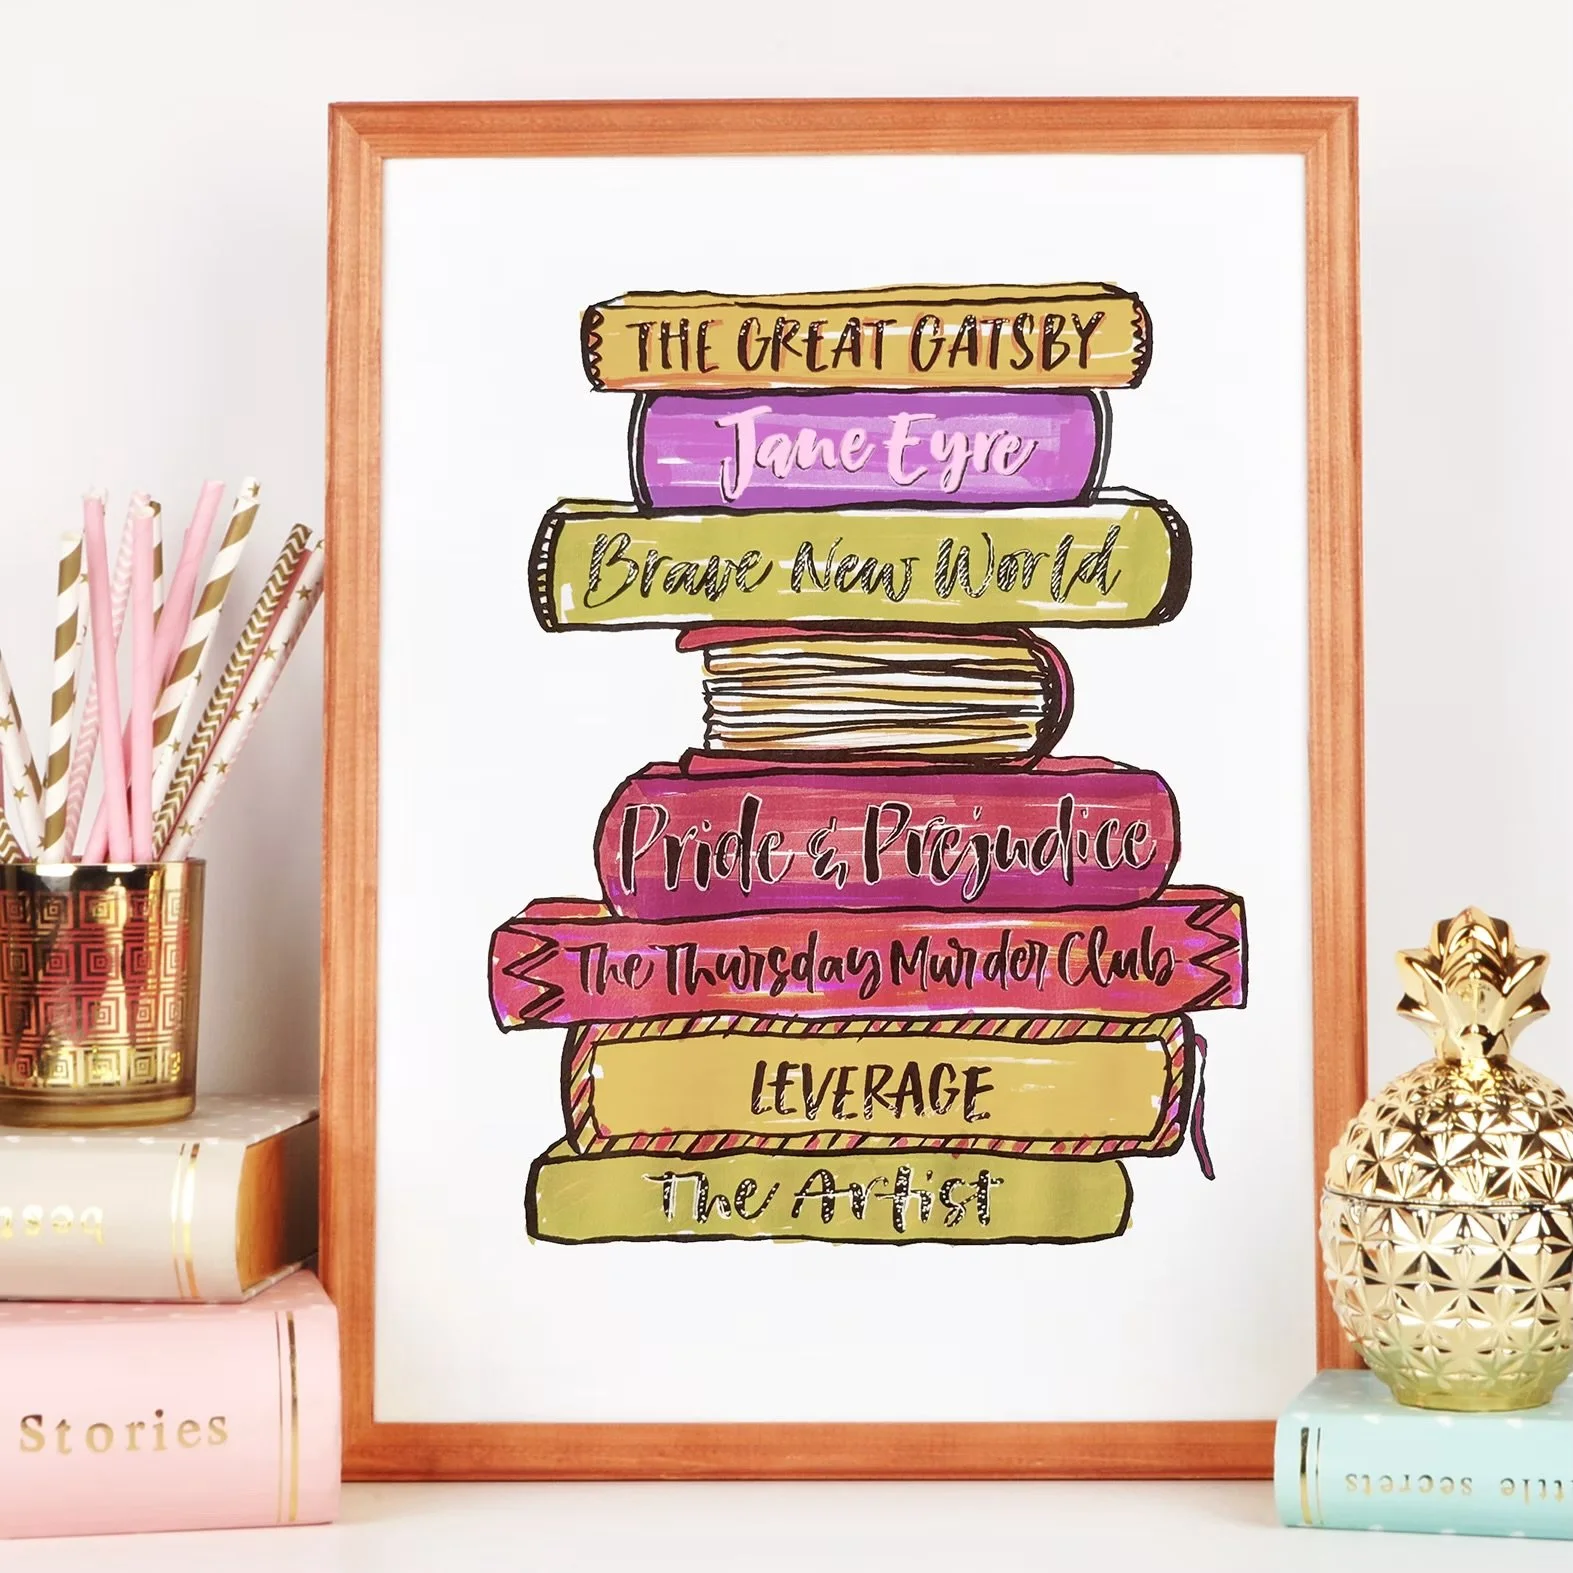 THE GREAT GATSBY
Jane Eyre
Brave New World
Pride & Prejudice
The Thursday Murder Club
LEVERAGE
The Artist
best
Stories
ttle secrets